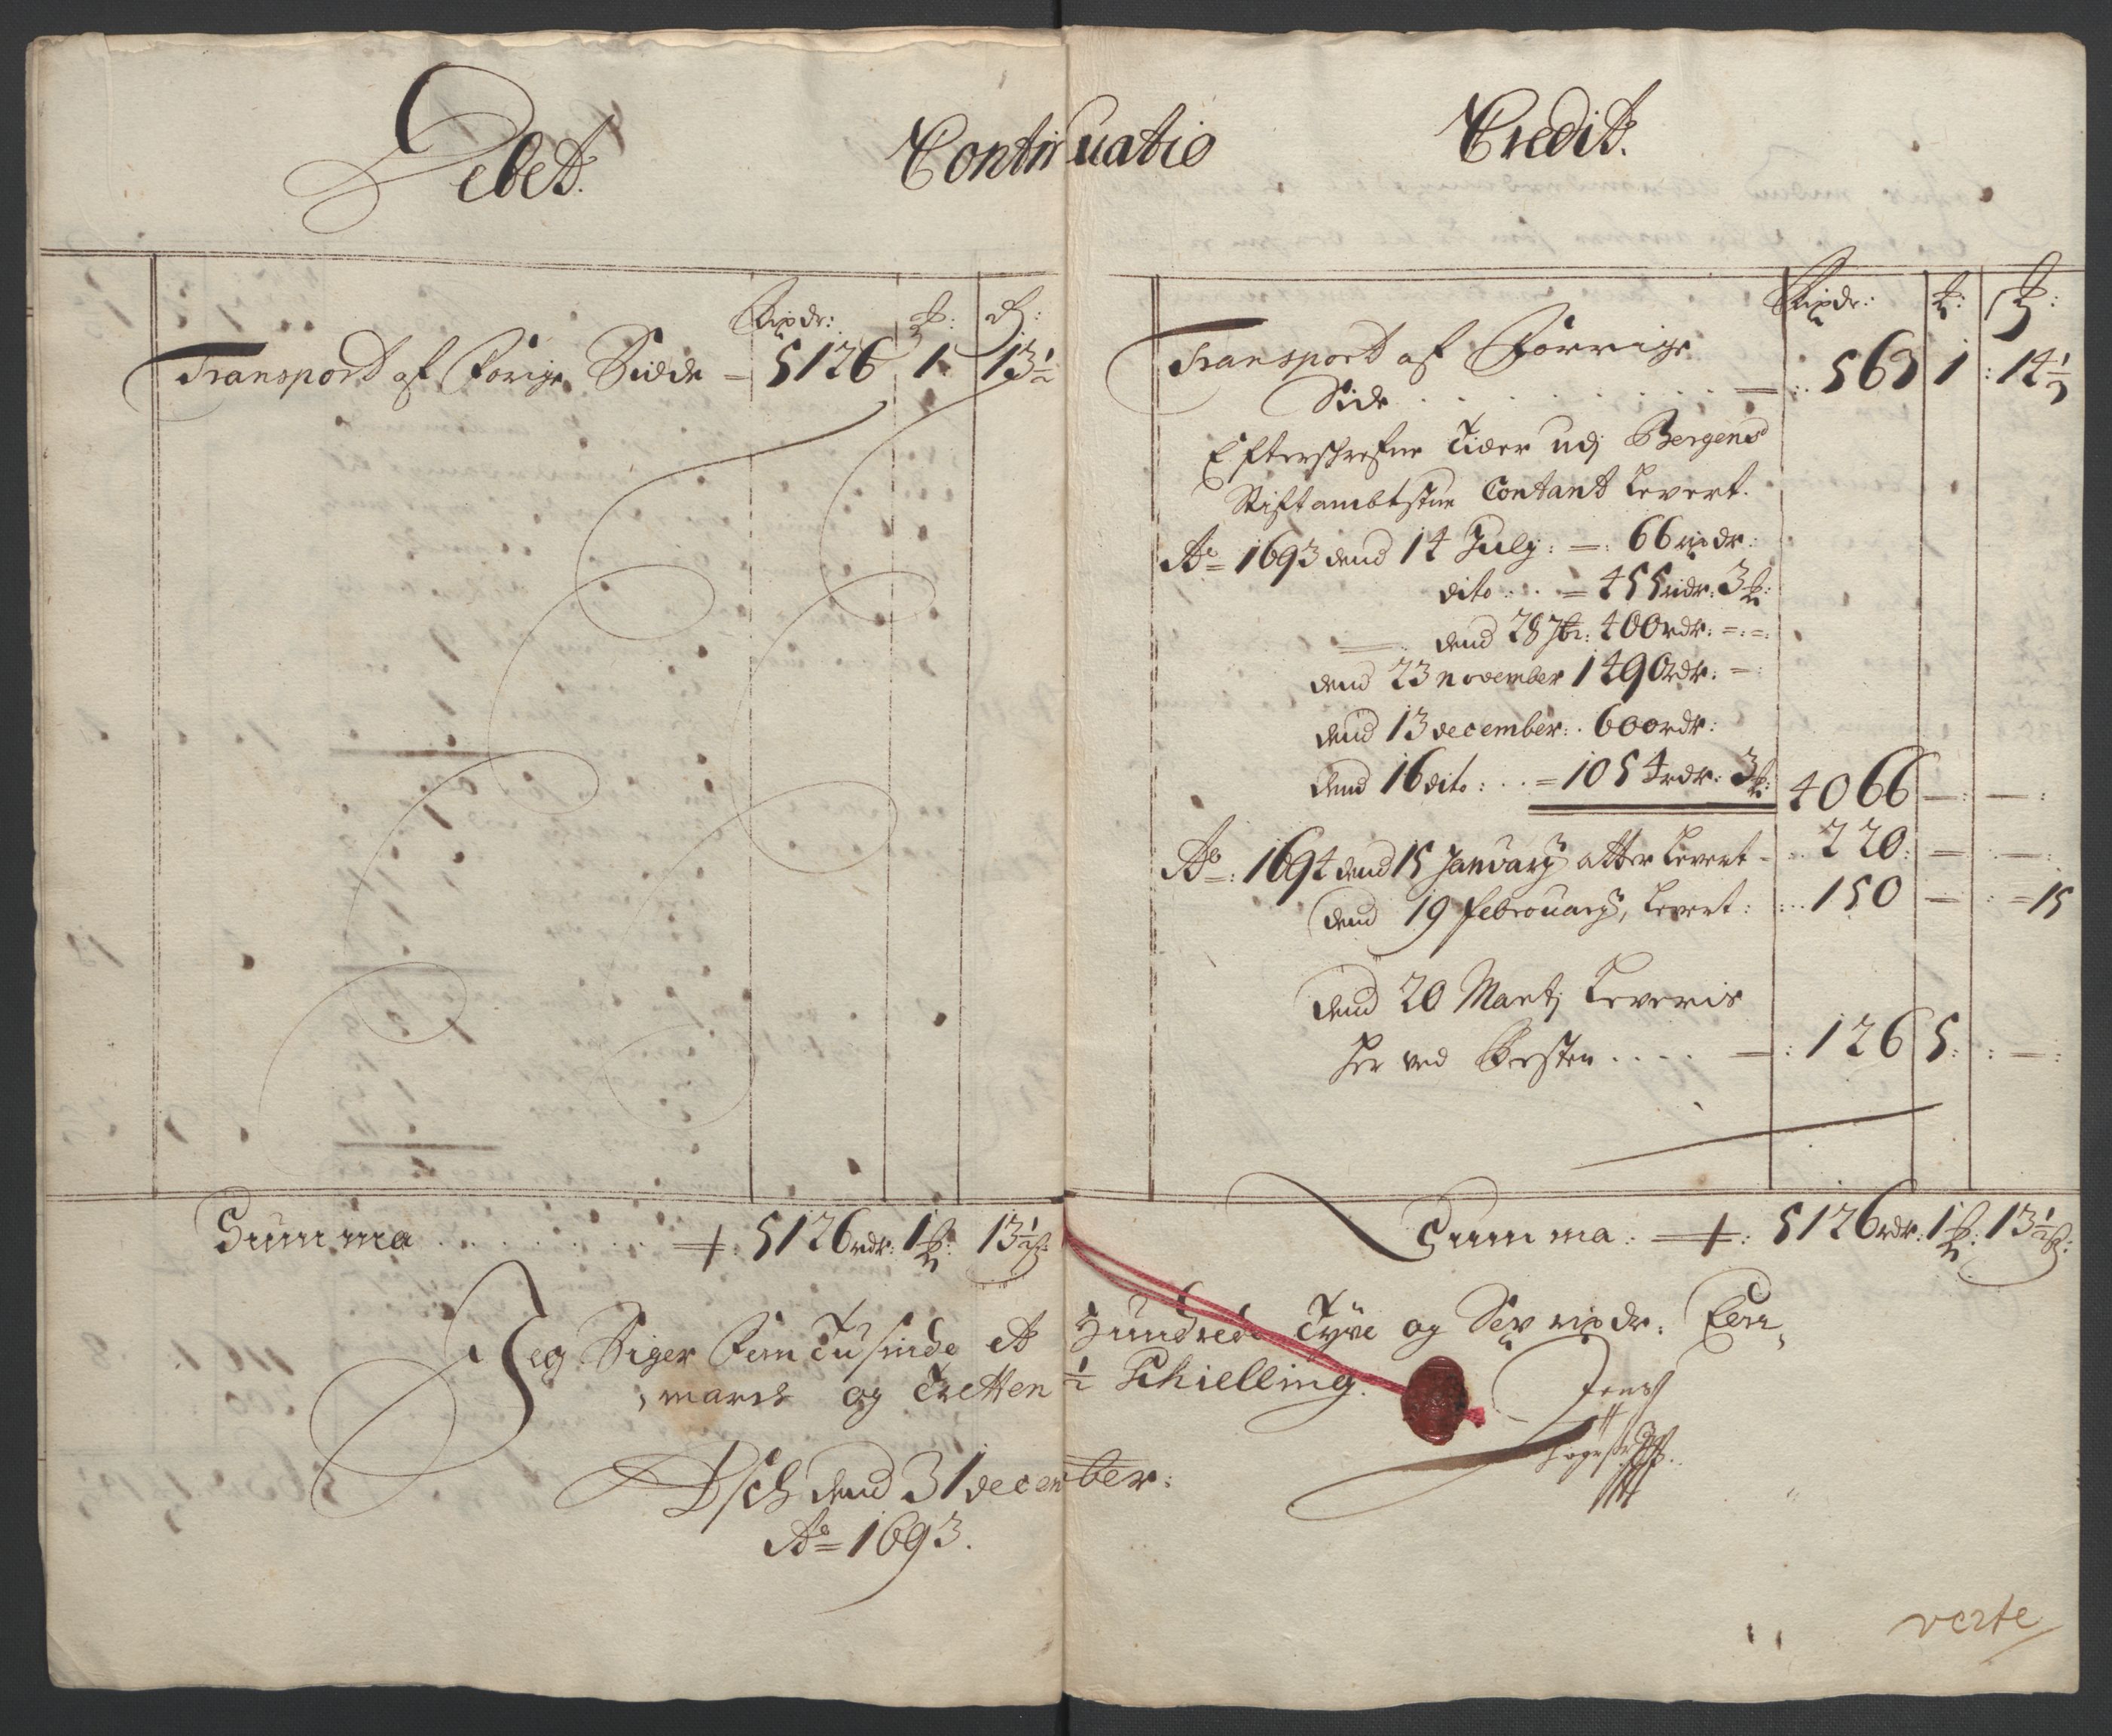 Debet. Continuatio Credit.
Rixdr: ℔: ß:
Transport af Forige Sidde = 5126 1 13½
Summa . . . . . . . 5126 rdr: 1 ℔: 13½ ß:
Rixdr: ℔: ß:
Transport af Forrige
Side . . . . . . . . . =: 563 1 : 14½
Efterschrefne Tider udj Bergens
Stiftambtstue Contant Levert.
Ao 1693 dend 14 July: =: 66 rixdr:
dito: . . = 455 rixdr: 3 ℔:
dend 28 7br: 400 rdr: =:=:
dend 23 november 1490 rdr: =
dend 13 december: . 600 rdr:
dend 16 dito: . . = 1054 rdr: 3 ℔: 4066 — : — :
Ao: 1694 dend 15 January atter Levert - 220: — : — :
dend 19 februarij, Levert: . . . 150 — : = 15
dend 20 Martj Leveris
her ved Resten . . . . — : 126 5: : — :
Summa: 5126 rdr: 1 ℔: 13½ ß:
Jeg Siger Fem Tusinde et Hundrede Tyve og Sex rixdr: Een
marck og Tretten ½ Schielling.
Jens
dend 31 december:
Ao = 1693.
verte